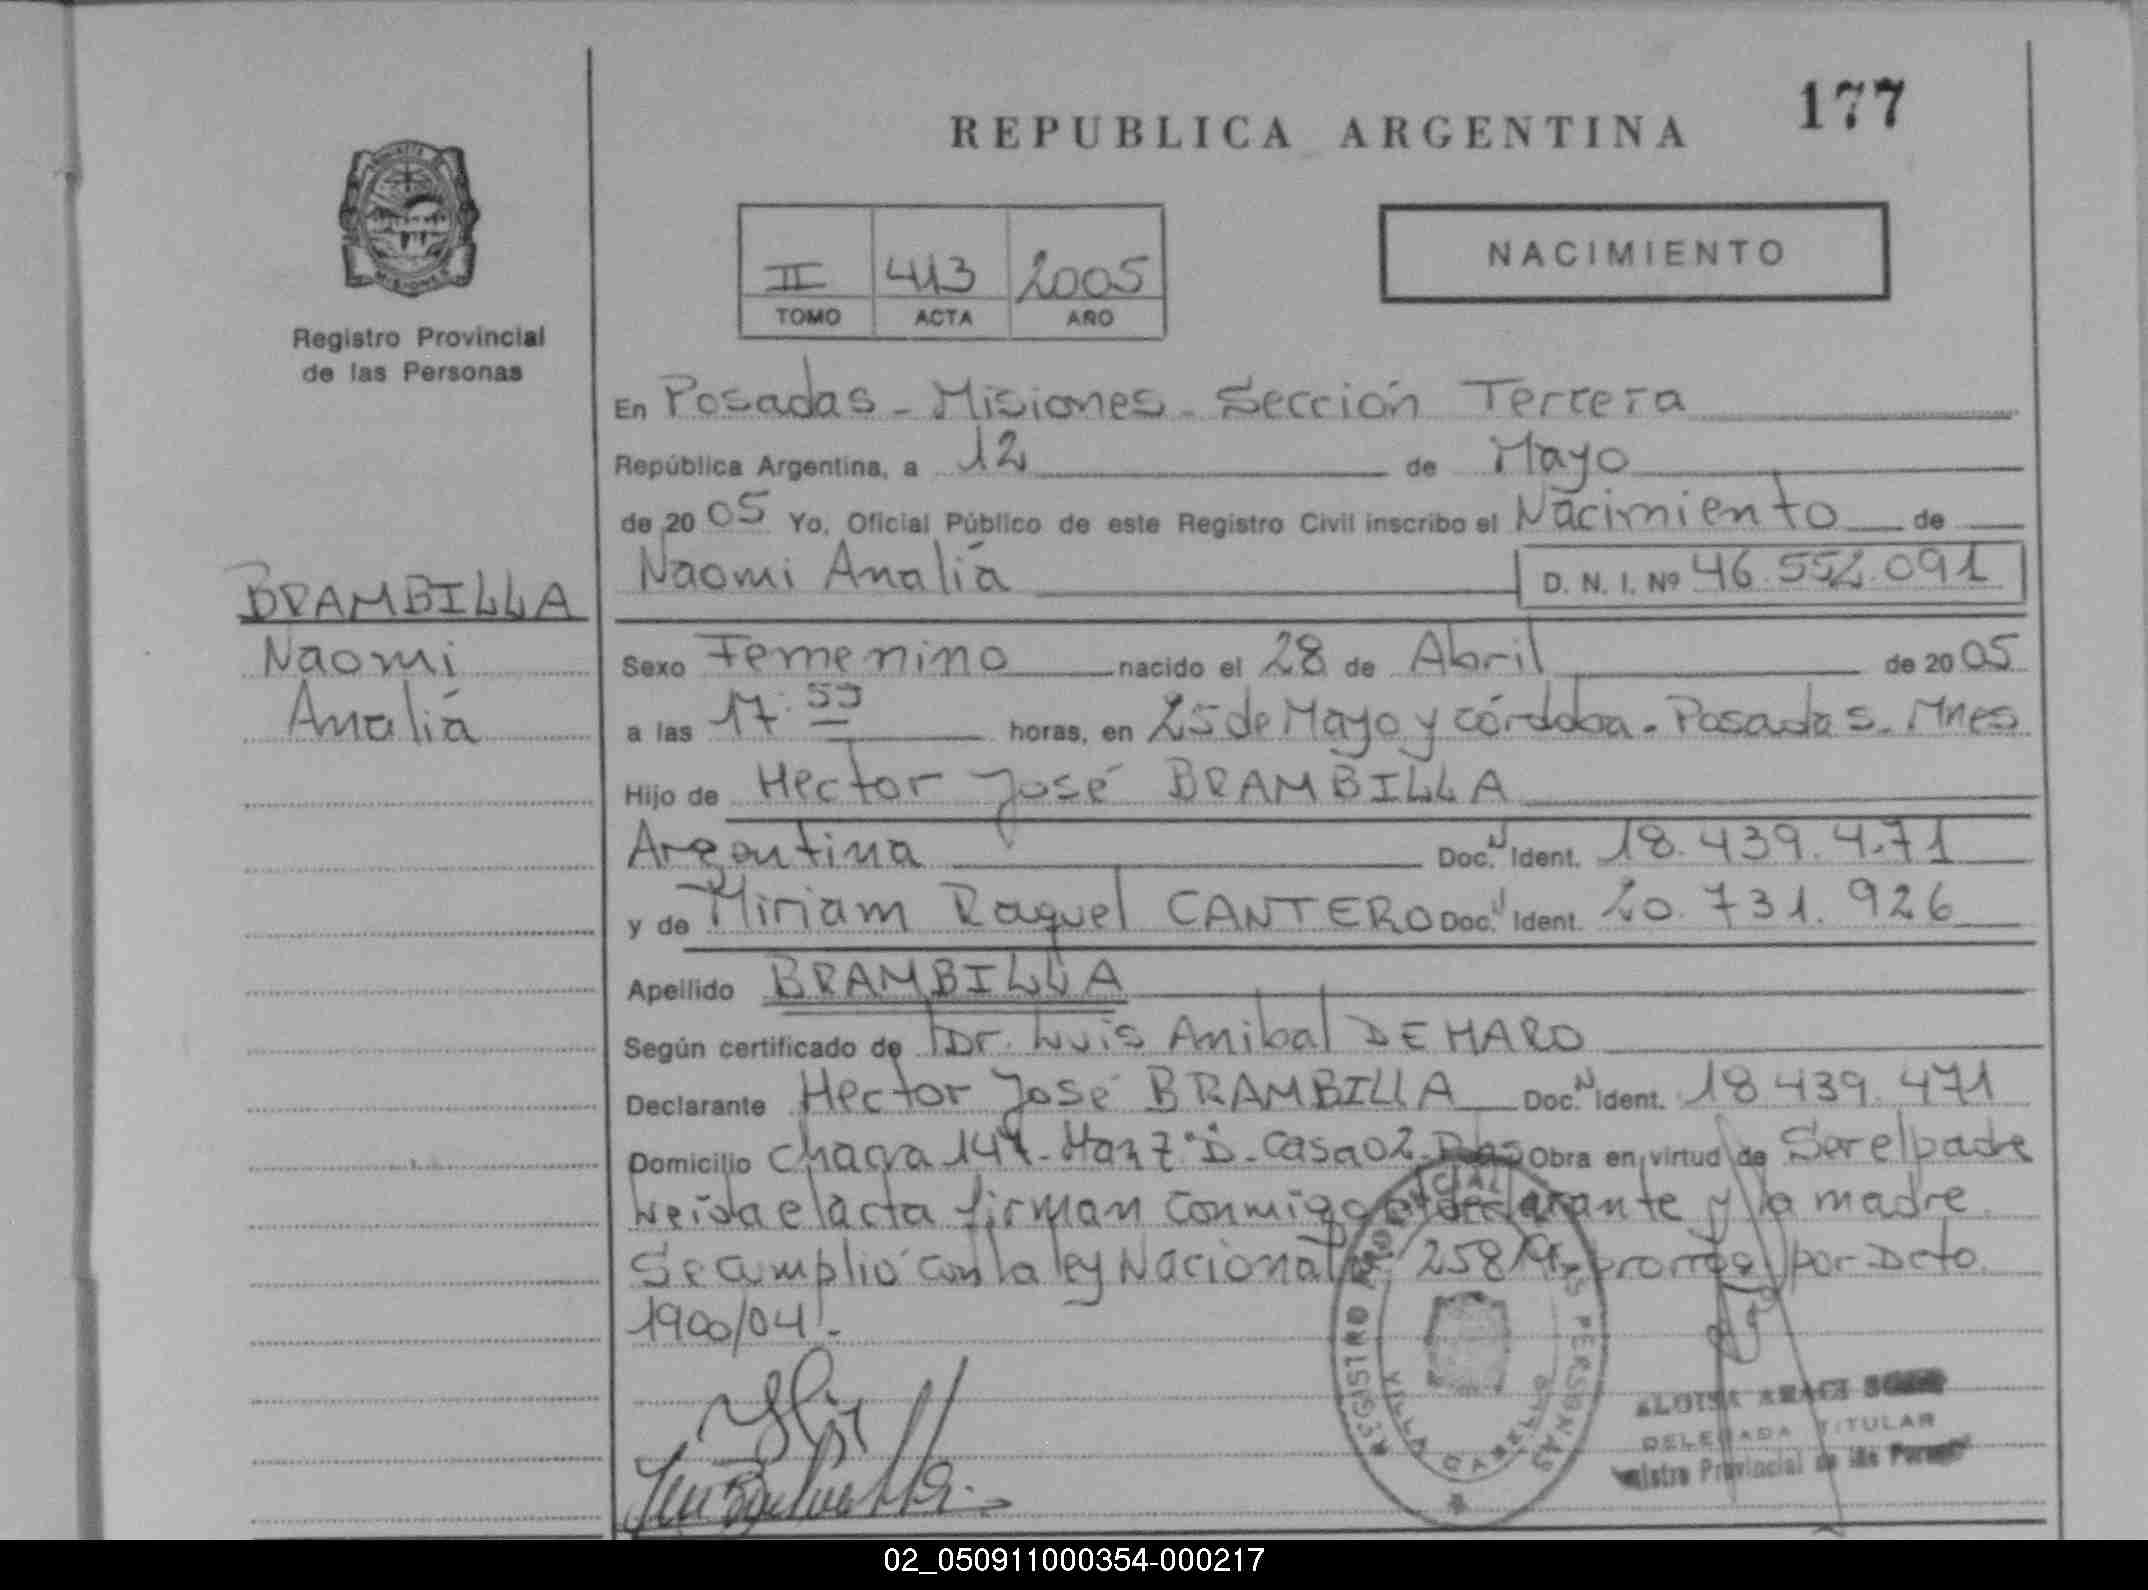 177
REPUBLICA ARGENTINA
NACIMIENTO
II 413 2005
TOMO ACTA AÑO
Registro Provincial
de las Personas
En Posadas - Misiones - Sección Tercera
República Argentina, a 12 de Mayo
de 2005 Yo, Oficial Público de este Registro Civil inscribo el Nacimiento de
Naomi Analiá D. N. I. Nº 46.552.091
BRAMBILLA
Naomi
Analiá
Sexo Femenino nacido el 28 de Abril de 2005
a las 17:55 horas, en 25 de Mayo y córdoba. Posadas. Mnes
Hijo de Hector José BRAMBILLA
Argentina Doc. Ident. 18.439.471
y de Miriam Raquel CANTERO Doc. Ident. 20.731.926
Apellido BRAMBILLA
Según certificado de Dr. Luis Anibal DE HARO
Declarante Hector José BRAMBILLA Doc. Ident. 18 439.471
Domicilio chacra 147 - Manz "D" - casa 02 - Obra en virtud de Ser el padre
Leída el acta firman conmigo el declarante y la madre.
Se cumplió con la ley Nacional por Dcto.
1900/04.-
REGISTRO PROVINCIAL PERSONAS
VILLA
DELEGADA TITULAR
Provincial de las
02_050911000354-000217